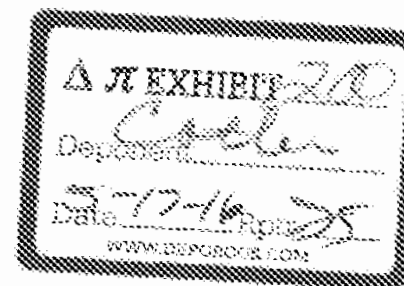 Δ π EXHIBIT 210
Deponent
Date 5-17-16 Rptr
WWW.DEPOBOOK.COM